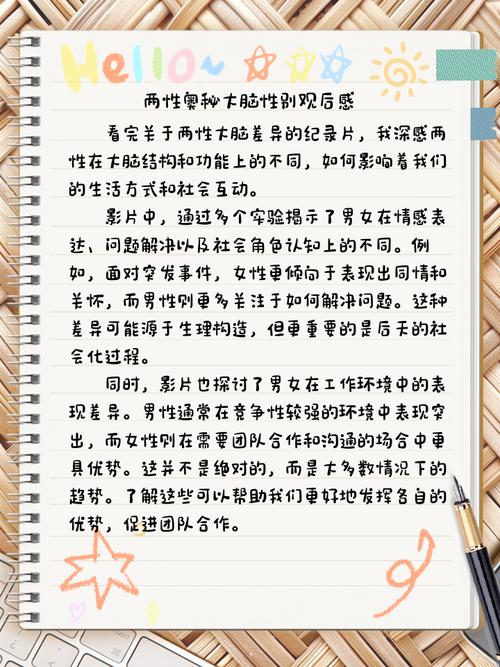 Hello~
两性奥秘大脑性别观后感
看完关于两性大脑差异的纪录片，我深感两
性在大脑结构和功能上的不同，如何影响着我们
的生活方式和社会互动。
影片中，通过多个实验揭示了男女在情感表
达、问题解决以及社会角色认知上的不同。例
如，面对突发事件，女性更倾向于表现出同情和
关怀，而男性则更多关注于如何解决问题。这种
差异可能源于生理构造，但更重要的是后天的社
会化过程。
同时，影片也探讨了男女在工作环境中的表
现差异。男性通常在竞争性较强的环境中表现突
出，而女性则在需要团队合作和沟通的场合中更
具优势。这并不是绝对的，而是大多数情况下的
趋势。了解这些可以帮助我们更好地发挥各自的
优势，促进团队合作。